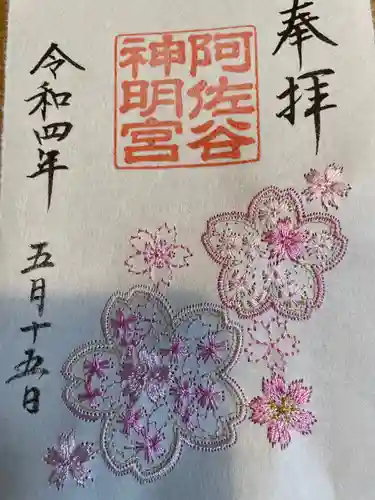 奉拝
阿佐谷
神明宮
令和四年
五月十五日